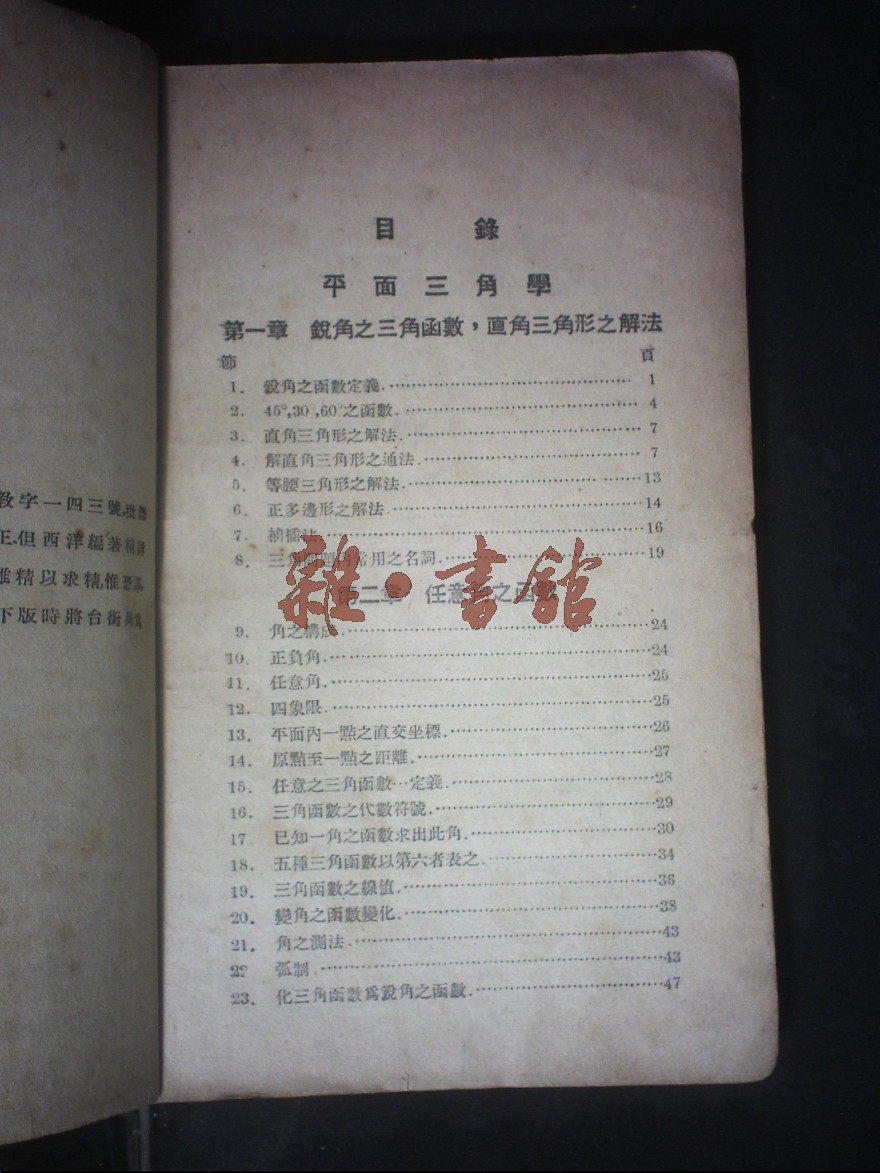 教字一四三號,批
正.但西洋編著
進精以求精,惟恐
下版時將台銜
目錄
平面三角學
第一章 銳角之三角函數，直角三角形之解法
節 頁
1. 銳角之函數定義 1
2. 45°,30°,60°之函數 4
3. 直角三角形之解法 7
4. 解直角三角形之通法 7
5. 等腰三角形之解法 13
6. 正多邊形之解法 14
7. 補插法 16
8. 三角問題內常用之名詞 19
第二章 任意角之函數
雜·書館
9. 角之構成 24
10. 正負角 24
11. 任意角 25
12. 四象限 25
13. 平面內一點之直交坐標 26
14. 原點至一點之距離 27
15. 任意之三角函數…定義 28
16. 三角函數之代數符號 29
17 已知一角之函數求出此角 30
18. 五種三角函數以第六者表之 34
19. 三角函數之線值 36
20. 變角之函數變化 38
21. 角之測法 43
22 弧制 43
23. 化三角函數爲銳角之函數 47